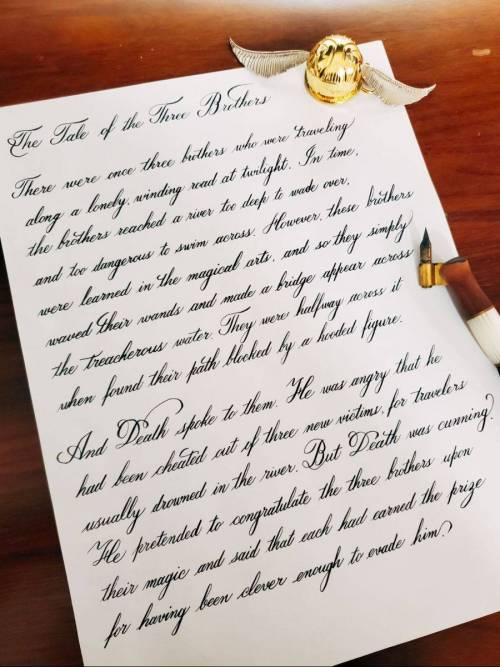 The Tale of the Three Brothers
There were once three brothers who were traveling
along a lonely, winding road at twilight. In time,
the brothers reached a river too deep to wade over,
and too dangerous to swim across. However, these brothers
were learned in the magical arts, and so they simply
waved their wands and made a bridge appear across
the treacherous water. They were halfway across it
when found their path blocked by a hooded figure.
And Death spoke to them. He was angry that he
had been cheated out of three new victims, for travelers
usually drowned in the river. But Death was cunning.
He pretended to congratulate the three brothers upon
their magic and said that each had earned the prize
for having been clever enough to evade him.